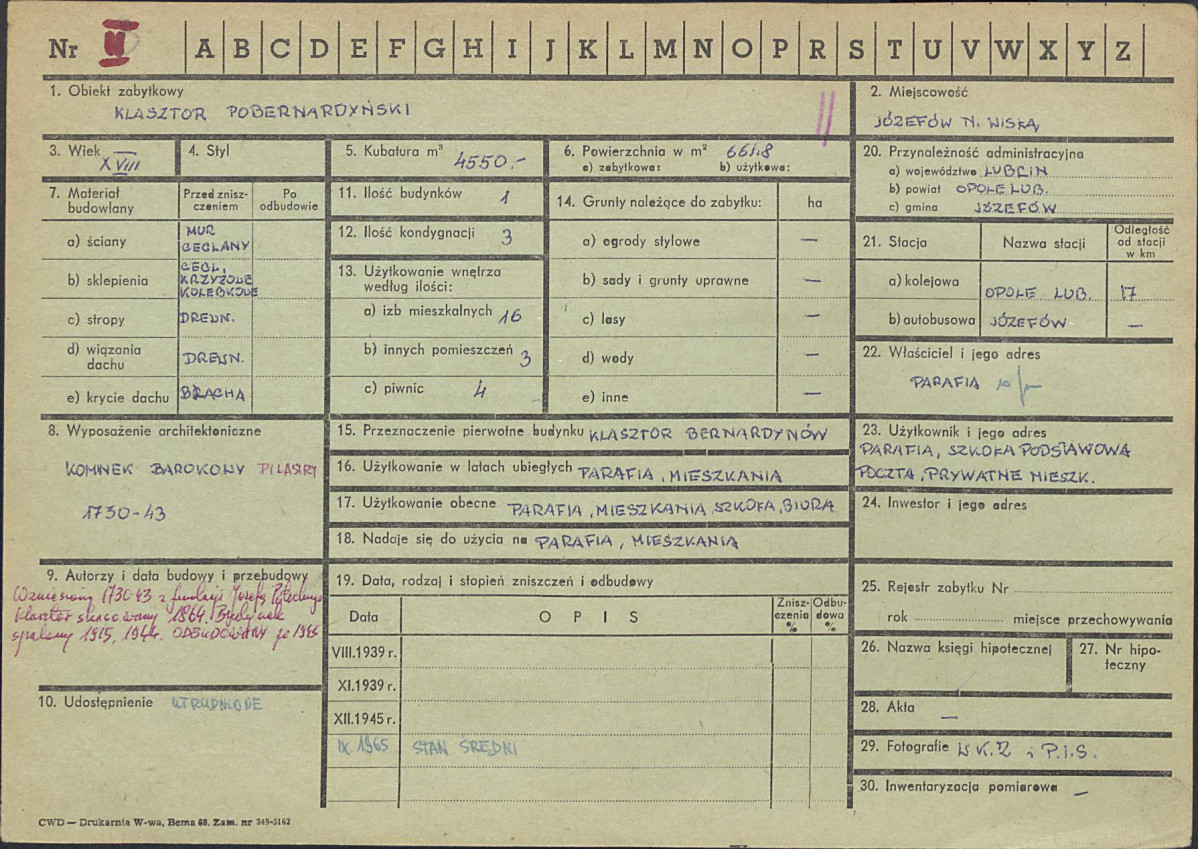 Nr II A B C D E F G H I J K L M N O P R S T U V W X Y Z
1. Obiekt zabytkowy
KLASZTOR POBERNARDYŃSKI
2. Miejscowość
JÓZEFÓW N. WISŁĄ
3. Wiek XVIII
4. Styl
5. Kubatura m³ 4550.-
6. Powierzchnia w m² 661.8
a) zabytkowa: b) użytkowa:
20. Przynależność administracyjna
a) województwo LUBLIN
b) powiat OPOLE LUB.
c) gmina JÓZEFÓW
7. Materiał budowlany
Przed znisz-
czeniem
Po
odbudowie
a) ściany MUR
CEGLANY
b) sklepienia CEGL,
KRZYŻOWE
KOLEBKOWE
c) stropy DREWN.
d) wiązania
dachu DREWN.
e) krycie dachu BLACHA
11. Ilość budynków 1
12. Ilość kondygnacji 3
13. Użytkowanie wnętrza
według ilości:
a) izb mieszkalnych 16
b) innych pomieszczeń 3
c) piwnic 4
14. Grunty należące do zabytku: ha
a) ogrody stylowe —
b) sady i grunty uprawne —
c) lasy —
d) wody —
e) inne —
21. Stacja
Nazwa stacji
Odległość
od stacji
w km
a) kolejowa OPOLE LUB. 17
b) autobusowa JÓZEFÓW —
22. Właściciel i jego adres
PARAFIA
8. Wyposażenie architektoniczne
KOMINEK BAROKOWY PILASTRY
1730-43
15. Przeznaczenie pierwotne budynku KLASZTOR BERNARDYNÓW
16. Użytkowanie w latach ubiegłych PARAFIA, MIESZKANIA
17. Użytkowanie obecne PARAFIA, MIESZKANIA, SZKOŁA, BIURA
18. Nadaje się do użycia na PARAFIA, MIESZKANIA
23. Użytkownik i jego adres
PARAFIA, SZKOŁA PODSTAWOWA
POCZTA, PRYWATNE MIESZK.
24. Inwestor i jego adres
9. Autorzy i data budowy i przebudowy
Wzniesiony 1730-43 z fundacji Józefa
klasztor skasowany 1864. Budynek
spalony 1915, 1944. ODBUDOWANY 1965
19. Data, rodzaj i stopień zniszczeń i odbudowy
Data
O P I S
Znisz-
czenia
%
Odbu-
dowa
%
VIII.1939 r.
XI.1939 r.
XII.1945 r.
IX.1965 STAN ŚREDNI
25. Rejestr zabytku Nr
rok miejsce przechowywania
26. Nazwa księgi hipotecznej
27. Nr hipo-
teczny
10. Udostępnienie UTRUDNIONE
28. Akta —
29. Fotografie W.K.Z i P.I.S.
30. Inwentaryzacja pomiarowa —
CWD — Drukarnia W-wa, Bema 60. Zam. nr 349-5162